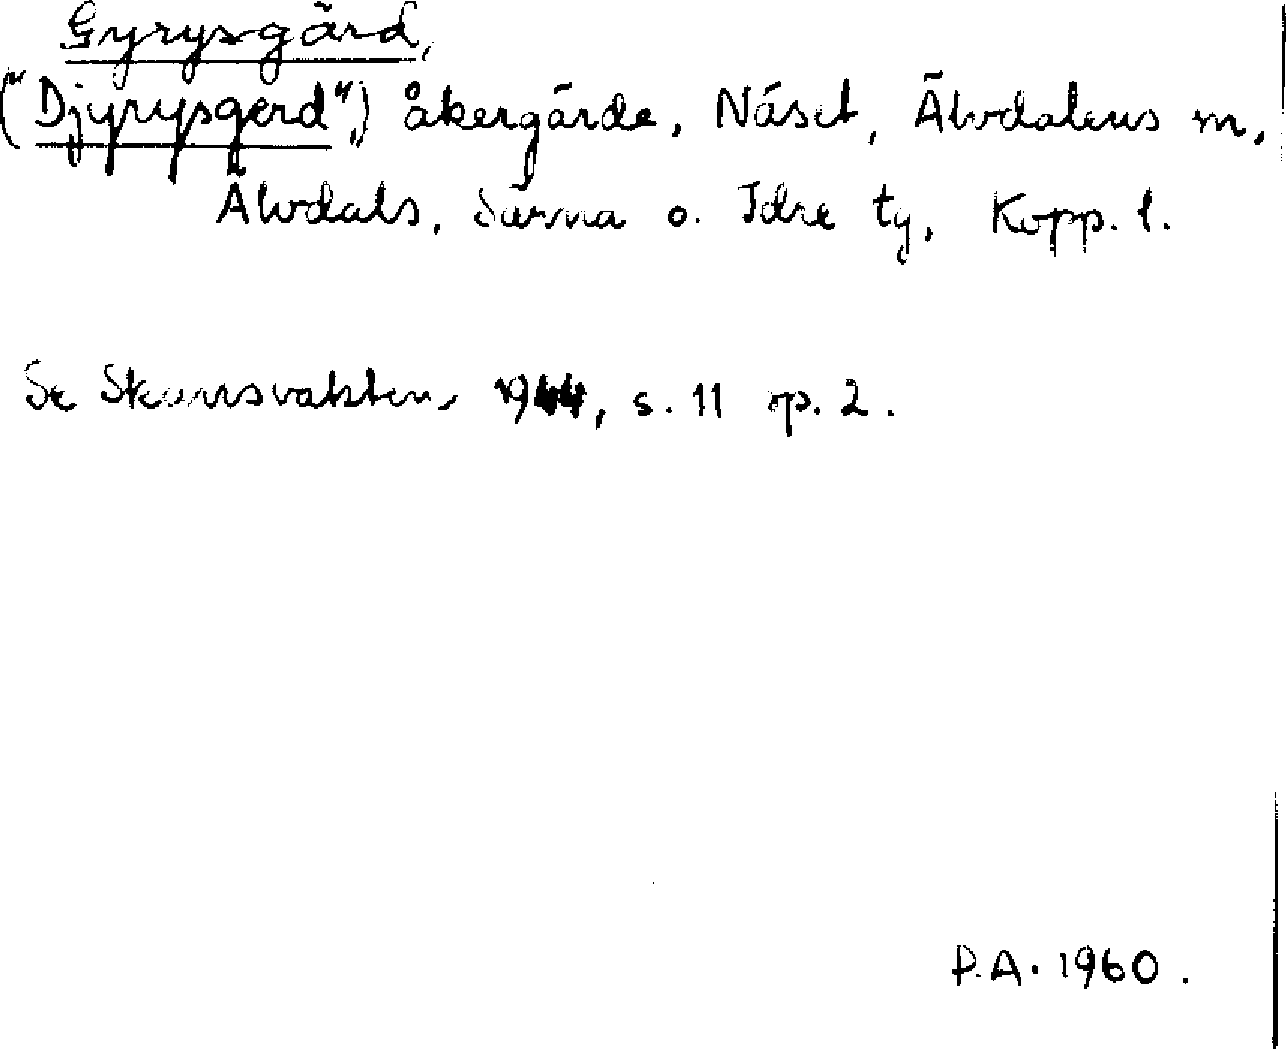 Gyrysgärd,
("Djyrysgerd",) åkergärde, Näset, Älvdalens m,
Älvdals, Särna o. Idre tg, Kopp. l.
Se Skansvakten, 1944, s. 11 sp. 2.
P.A. 1960.